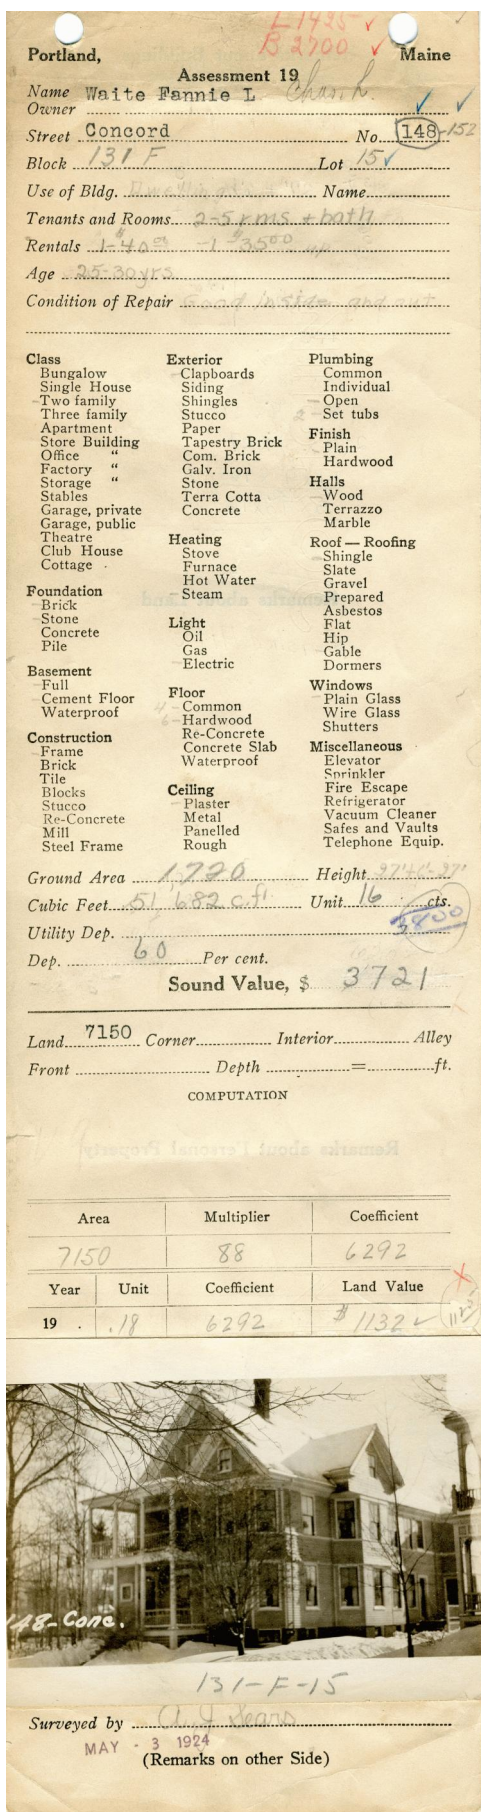 L 1425 ✓
B 2700 ✓
Portland, Maine
Assessment 19
Name Waite Fannie L Chas. L.
Owner
Street Concord No. 148-152
Block 131 F Lot 15 ✓
Use of Bldg. Dwelling Name
Tenants and Rooms 2-5 rms + bath
Rentals 1-$40.00 -1-$35.00
Age 25-30 yrs
Condition of Repair Good inside and out
Class
Bungalow
Single House
-Two family
Three family
Apartment
Store Building
Office "
Factory "
Storage "
Stables
Garage, private
Garage, public
Theatre
Club House
Cottage
Foundation
-Brick
-Stone
Concrete
Pile
Basement
-Full
-Cement Floor
Waterproof
Construction
-Frame
Brick
Tile
Blocks
Stucco
Re-Concrete
Mill
Steel Frame
Exterior
-Clapboards
Siding
Shingles
Stucco
Paper
Tapestry Brick
Com. Brick
Galv. Iron
Stone
Terra Cotta
Concrete
Heating
Stove
Furnace
Hot Water
-Steam
Light
Oil
Gas
-Electric
Floor
4-Common
6-Hardwood
Re-Concrete
Concrete Slab
Waterproof
Ceiling
-Plaster
Metal
Panelled
Rough
Plumbing
Common
Individual
-Open
2-Set tubs
Finish
-Plain
Hardwood
Halls
-Wood
Terrazzo
Marble
Roof — Roofing
-Shingle
Slate
Gravel
Prepared
Asbestos
Flat
Hip
-Gable
Dormers
Windows
-Plain Glass
Wire Glass
Shutters
Miscellaneous
Elevator
Sprinkler
Fire Escape
Refrigerator
Vacuum Cleaner
Safes and Vaults
Telephone Equip.
Ground Area 1720 Height
Cubic Feet 51,682 c.ft. Unit 16 cts.
3800
Utility Dep.
Dep. 60 Per cent.
Sound Value, $ 3721
Land 7150 Corner Interior Alley
Front Depth = ft.
COMPUTATION
Area Multiplier Coefficient
7150 88 6292
Year Unit Coefficient Land Value
19 . .18 6292 $1132 ✓ 1125
148-Conc.
131-F-15
Surveyed by A J Sears
MAY - 3 1924
(Remarks on other Side)